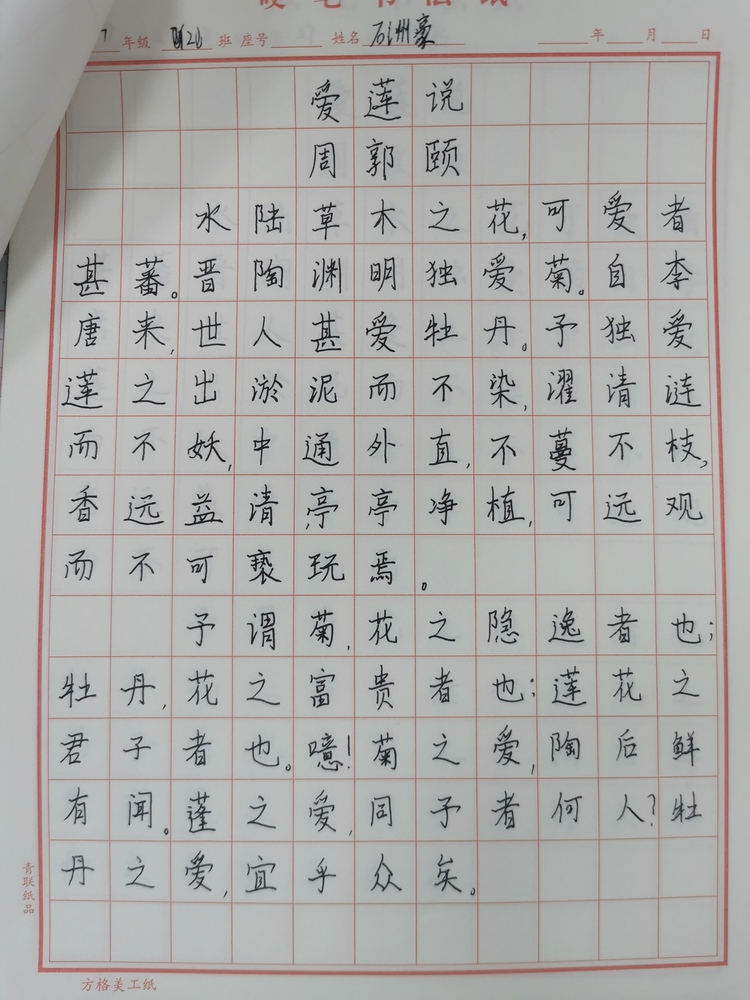 硬笔书法纸
7年级 班 座号 姓名 石洲豪 年 月 日
爱莲说
周郭颐
水陆草木之花,可爱者
甚蕃。晋陶渊明独爱菊。自李
唐来,世人甚爱牡丹。予独爱
莲之出淤泥而不染,濯清涟
而不妖,中通外直,不蔓不枝,
香远益清,亭亭净植,可远观
而不可亵玩焉。
予谓菊,花之隐逸者也;
牡丹,花之富贵者也;莲花之
君子者也。噫!菊之爱,陶后鲜
有闻。蓬之爱,同予者何人?牡
丹之爱,宜乎众矣。
青联纸品
方格美工纸